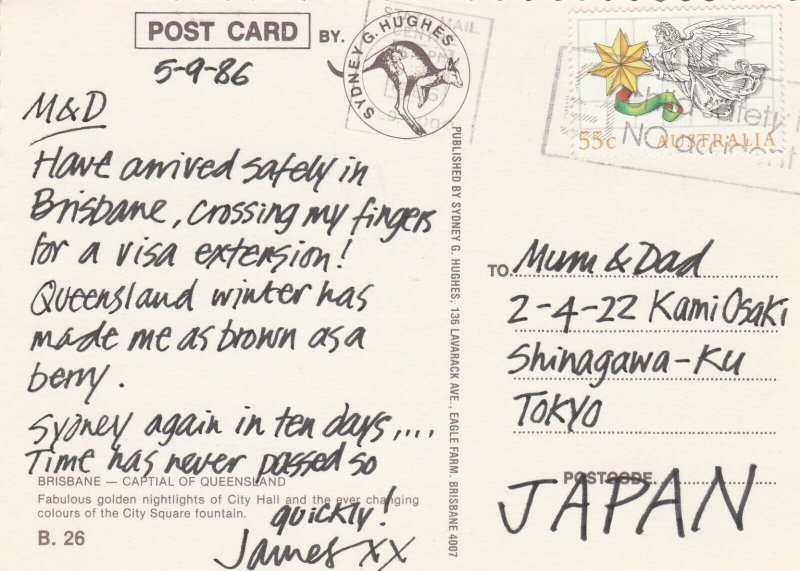 POST CARD BY.
SYDNEY G. HUGHES
5-9-86
M&D
Have arrived safely in
Brisbane, crossing my fingers
for a visa extension!
Queensland winter has
made me as brown as a
berry.
Sydney again in ten days,...
Time has never passed so
quickly!
James xx
BRISBANE — CAPTIAL OF QUEENSLAND
Fabulous golden nightlights of City Hall and the ever changing
colours of the City Square fountain.
B. 26
PUBLISHED BY SYDNEY G. HUGHES, 136 LAVARACK AVE., EAGLE FARM. BRISBANE 4007
55c AUSTRALIA
safety
NO accident
TO Mum & Dad
2-4-22 Kami Osaki
Shinagawa-Ku
TOKYO
POSTCODE
JAPAN